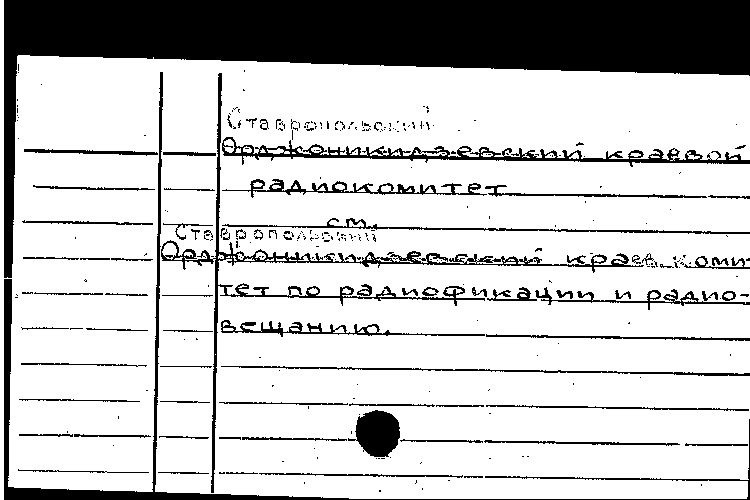 Ставропольский
Орджоникидзевский краевой
радиокомитет
см.
Ставропольский
Орджоникидзевский краев. коми-
тет по радиофикации и радио-
вещанию.